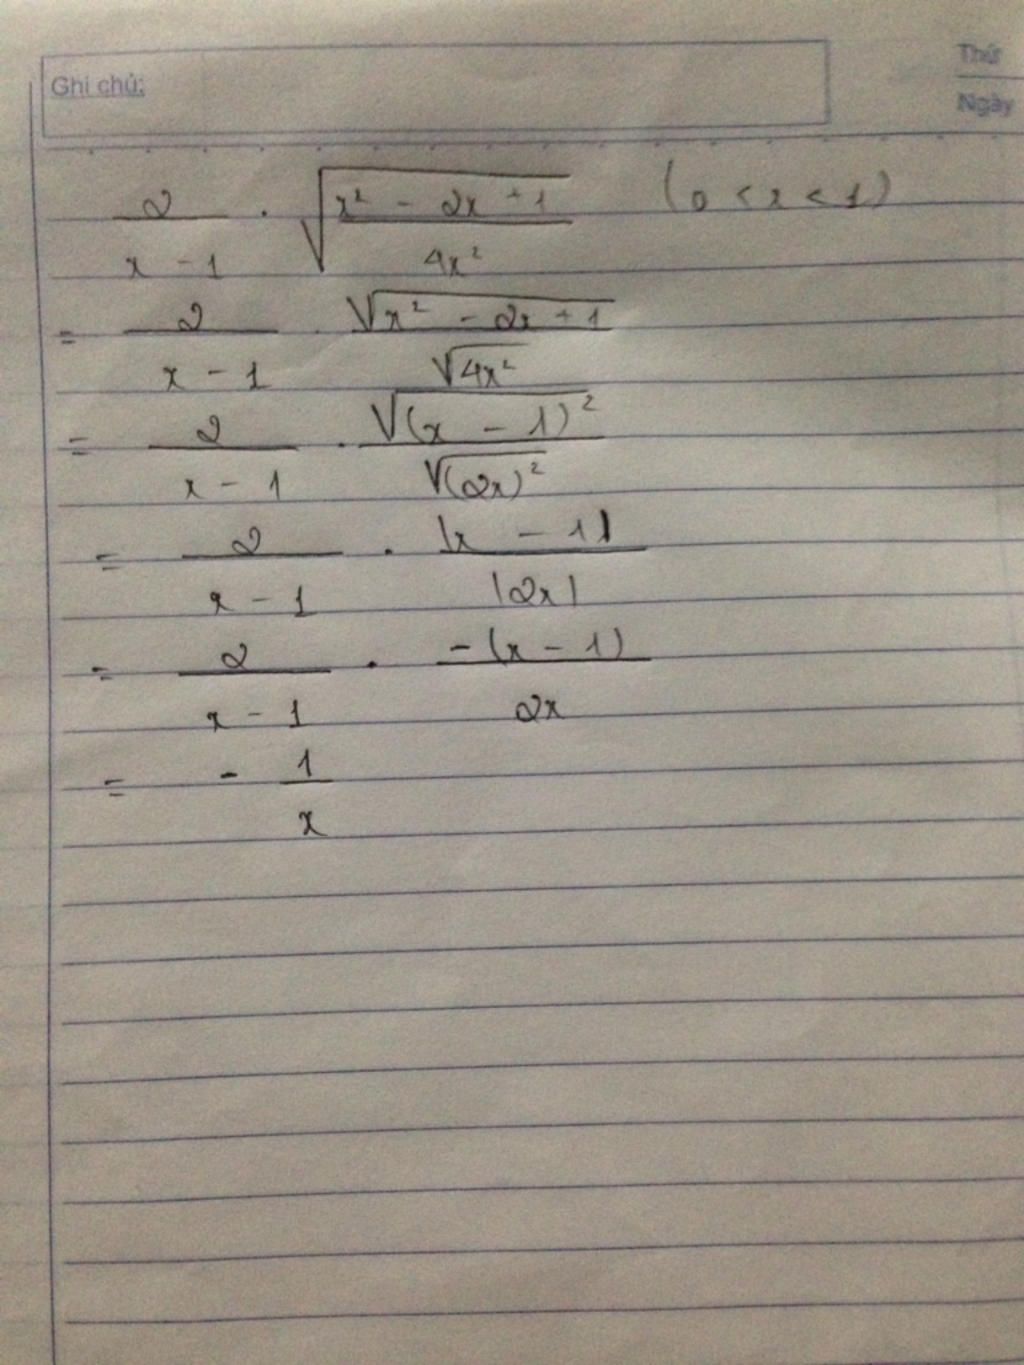 Ghi chú:
Thứ
Ngày
2/(x - 1) . √((x² - 2x + 1)/(4x²)) (0 < x < 1)
= 2/(x - 1) . √(x² - 2x + 1)/√(4x²)
= 2/(x - 1) . √((x - 1)²)/√((2x)²)
= 2/(x - 1) . |x - 1|/|2x|
= 2/(x - 1) . -(x - 1)/2x
= - 1/x